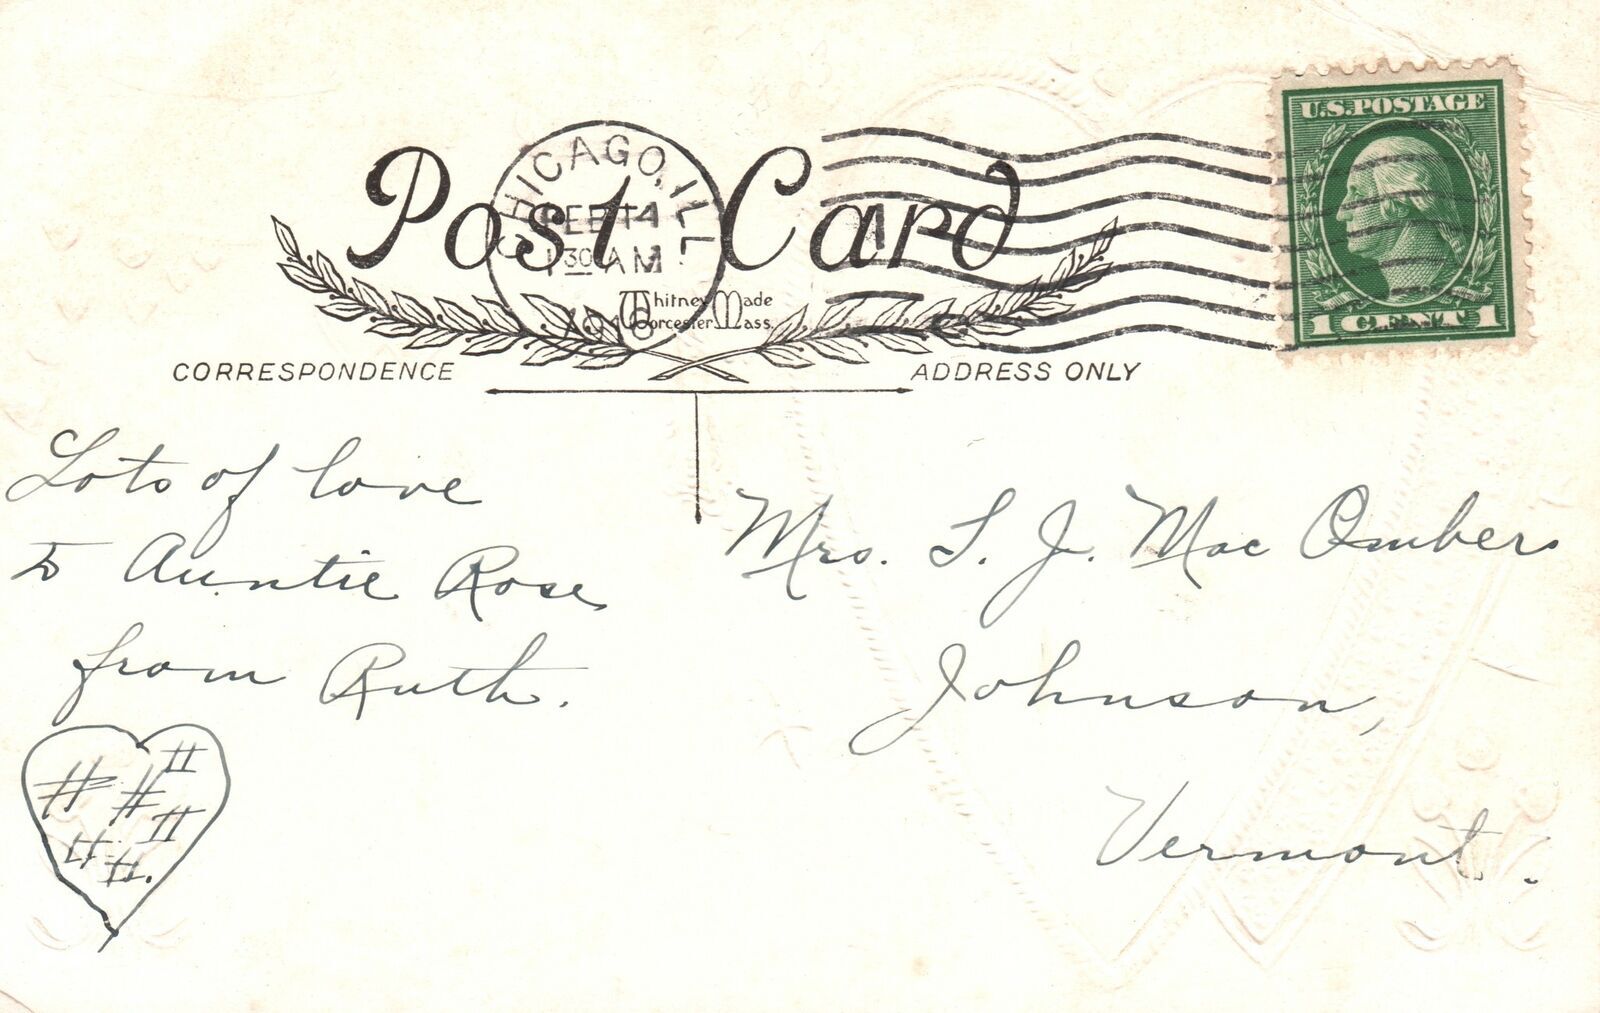 U.S. POSTAGE
1 CENT 1
CHICAGO, ILL.
FEB 14
1 30 AM
Post Card
Whitney Made
Worcester Mass.
CORRESPONDENCE
ADDRESS ONLY
Lots of love
to Auntie Rose
from Ruth.
Mrs. S. J. Mac Ombers
Johnson,
Vermont.